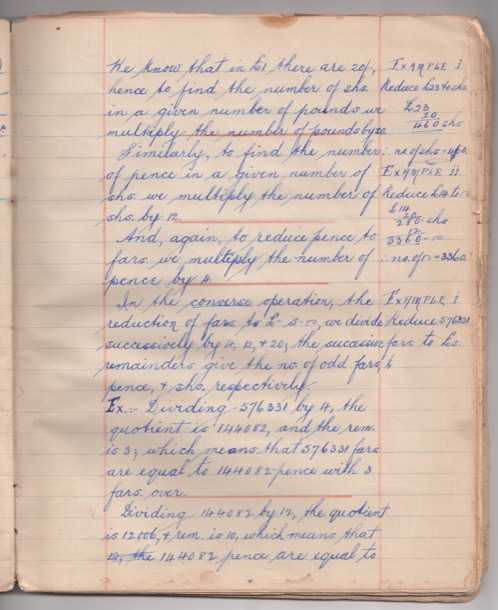 We know that in £1 there are 20/-,
hence to find the number of shs.
in a given number of pounds we
multiply the number of pounds by 20.
Similarly, to find the number
of pence in a given number of
shs. we multiply the number of
shs. by 12.
And, again, to reduce pence to
fars. we multiply the number of
pence by 4.
In the converse operation, the
reduction of fars to £- s-D, we divide
successively by 4, 12, + 20; the successive
remainders give the no. of odd fars,
pence, + shs, respectively.
Ex:- Dividing 576331 by 4, the
quotient is 144082, and the rem.
is 3; which means that 576331 fars
are equal to 144082 pence with 3
fars. over.
Dividing 144082 by 12, the quotient
is 12006, + rem. is 10, which means that
the 144082 pence are equal to
EXAMPLE i
Reduce £23 to shs
£23
20
460 shs
∴ no of shs = 460
EXAMPLE ii
Reduce £14 to
£14
20
280 shs
12
3360
∴ no. of = 3360
EXAMPLE i
Reduce 576331
fars to £s